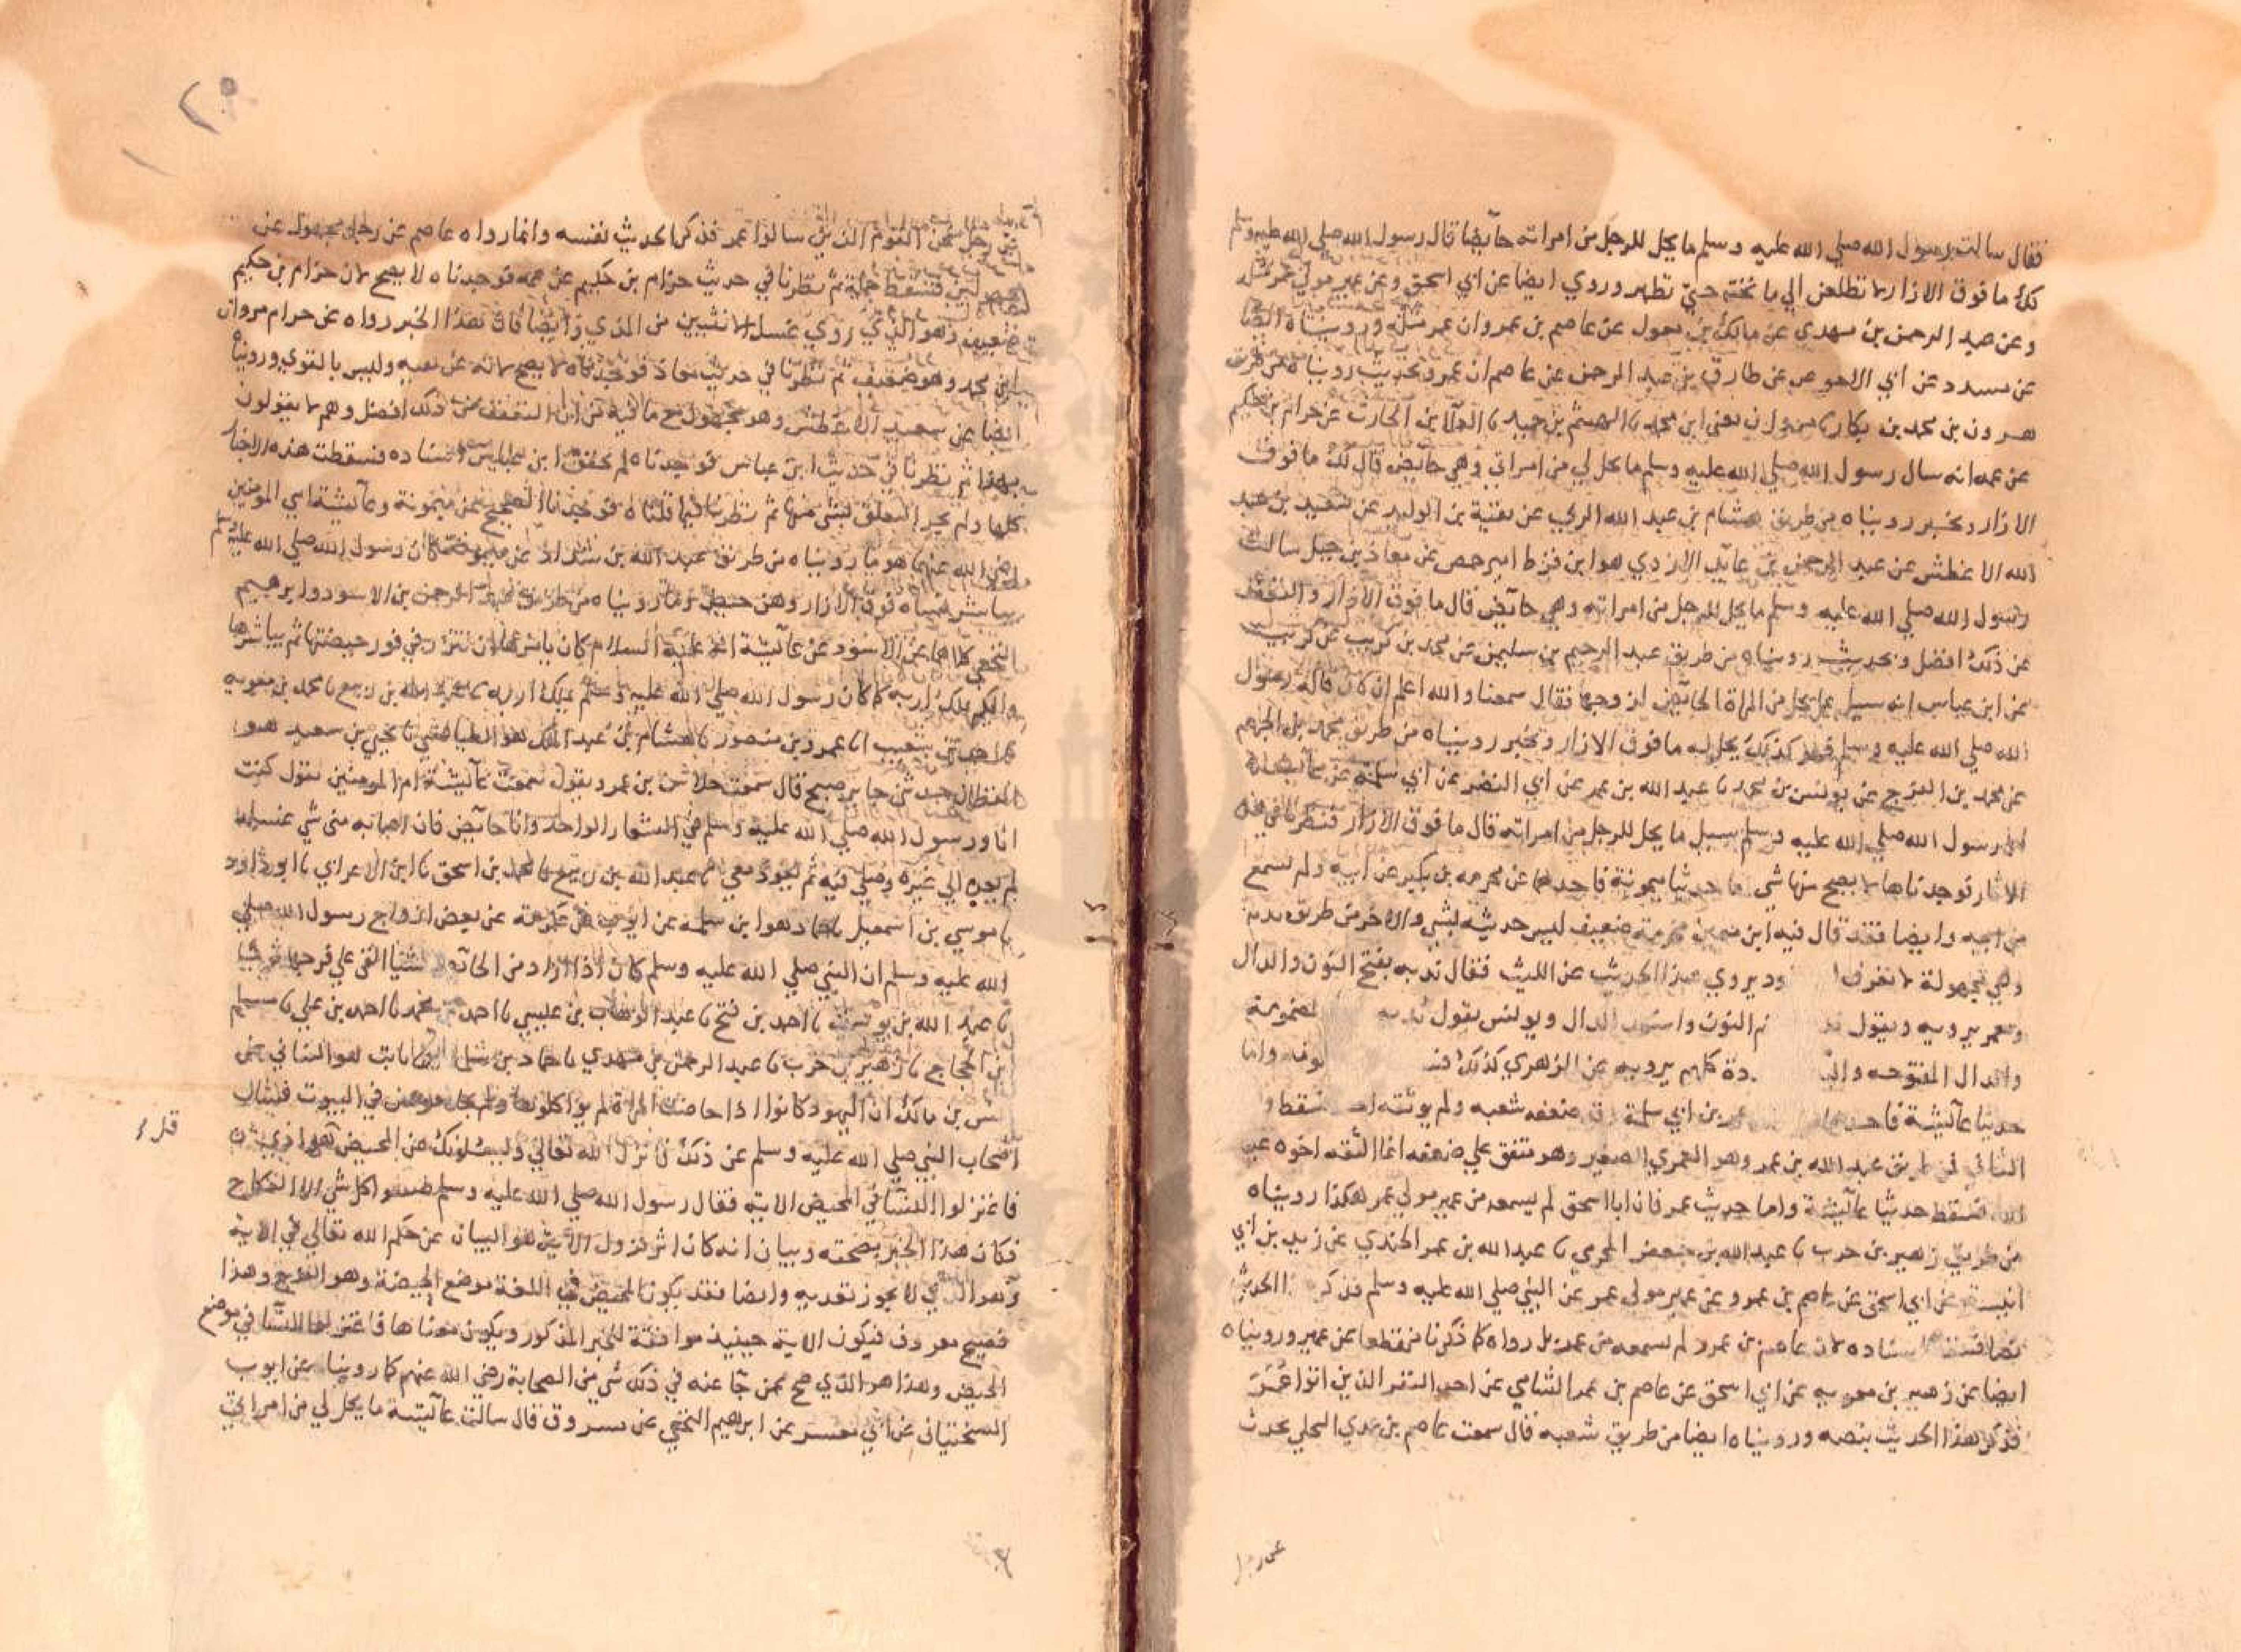 فقال سالت رسول الله صلي الله عليه وسلم ما يحل للرجل من امراته حآيضا قال رسول الله صلي الله عليه وسلم
لك ما فوق الازار لا تطلعن الي ما تحته حتي تطهر وروي ايضا عن ابي اسحق عن عمير مولي عمر مثله
وعن عبد الرحمن بن مهدي عن مالك بن مغول عن عاصم بن عمرو ان عمر مثله ورويناه ايضا
عن مسدد عن ابي الاحوص عن طارق بن عبد الرحمن عن عاصم ان عمر وبحديث رويناه من طريق
هرون بن محمد بن بكار نا مروان يعني ابن محمد نا الهيثم بن حميد نا العلا بن الحارث عن حرام بن حكيم
عن عمه انه سال رسول الله صلي الله عليه وسلم ما يحل لي من امراتي وهي حآيض قال لك ما فوق
الازار وبخبر رويناه من طريق هشام بن عبد الملك عن بقية بن الوليد عن سعيد بن عبد
الله الاغطش عن عبد الرحمن بن عآيذ الازدي هو ابن قرط امير حمص عن معاذ بن جبل سالت
رسول الله صلي الله عليه وسلم ما يحل للرجل من امراته وهي حآيض قال ما فوق الازار والتعفف
عن ذلك افضل وبحديث رويناه من طريق عبد الرحيم بن سليمن عن محمد بن كريب عن كريب
عن ابن عباس انه سيل عما يحل من المراة الحآيض لزوجها فقال سمعنا والله اعلم ان كان قاله رسول
الله صلي الله عليه وسلم فهو كذلك يحل له ما فوق الازار وبخبر رويناه من طريق محمد بن الجهم
عن محمد بن الفرج عن يونس بن محمد نا عبد الله بن عمر عن ابي النضر عن ابي سلمة عن عآيشة
ان رسول الله صلي الله عليه وسلم سيل ما يحل للرجل من امراته قال ما فوق الازار فنظرنا في هذه
الاثار فوجدناها لا يصح منها شي اما حديثا ميمونة فاحدهما عن مخرمه بن بكير عن ابيه ولم يسمع
من ابيه وايضا فقد قال فيه ابن معين مخرمة ضعيف ليس حديثه بشي والاخر من طريق ندبة
وهي مجهولة لا تعرف ودير وي هذا الحديث عن الليث فقال ندبه بفتح النون والدال
ومعمر يرويه ويقول ند م النون واسكان الدال ويونس يقول تدبه لمضمومة
والدال المفتوحه واليا دة كلهم يرويه عن الزهري كذلك فسقط واما
حديثا عآيشة فاحدهما عمر بن ابي سلمة وقد ضعفه شعبه ولم يوثقه احد فسقط و
الثاني من طريق عبد الله بن عمر وهو العمري الصغير وهو متفق علي ضعفه انما الثقه اخوه عبيد
الله فسقط حديثا عآيشة واما حديث عمر فان ابا اسحق لم يسمعه من عمير مولي عمر هكذا رويناه
من طريق زهير بن حرب نا عبد الله بن جعفر المخرمي نا عبيد الله بن عمر الجندي عن زيد بن ابي
انيسة عن ابي اسحق عن عاصم بن عمرو عن عمير مولي عمر عن النبي صلي الله عليه وسلم فذكر الحديث
اسناده لان عاصم بن عمرو لم يسمعه من عمر بل رواه كما ذكرنا منقطعا عن عمير ورويناه
ايضا عن زهير بن معويه عن ابي اسحق عن عاصم بن عمر الشامي عن احد النفر الذين اتوا عمر
فذكر هذا الحديث بنصه ورويناه ايضا من طريق شعبه قال سمعت عاصم بن عمرو البجلي يحدث
عن رجل
عن رجل عن القوم الذين سالوا عمر فذكر الحديث نفسه وانما رواه عاصم عن رجل مجهول عن
فسقط جملة ثم نظرنا في حديث حزام بن حكيم عن عمه فوجدناه لا يصح لان حزام بن حكيم
ضعيف وهو الذي روي غسل الانثيين من المذي وايضا فان هذا الخبر رواه عن حرام مروان
ابن محمد وهو ضعيف ثم نظرنا في حديث معاذ فوجدناه لا يصح لانه عن بقيه وليس بالقوي وروياه
ايضا عن سعيد الاغطش وهو مجهول مع ما فيه من ان التعفف عن ذلك افضل وهم لا يقولون
بهذا ثم نظرنا في حديث ابن عباس فوجدناه لم يحقق ابن عباس اسناده فسقطت هذه الاخبار
كلها ولم يجز التعلق بشي منها ثم نظرنا فيما قلناه فوجدنا الصحيح عن ميمونة وعآيشة امي المومنين
رضي الله عنهما هو ما رويناه من طريق عبد الله بن شداد عن ميمونة كان رسول الله صلي الله عليه وسلم
يباشر نساه فوق الازار وهن حيض وما رويناه من طريق عبد الرحمن بن الاسود وابرهيم
النخعي كلاهما عن الاسود عن عآيشة انه عليه السلام كان يامرها ان تتزر في فور حيضتها ثم يباشرها
وايكم يملك اربه كما كان رسول الله صلي الله عليه وسلم يملك اربه نا عبد الله بن ربيع نا محمد بن معويه
نا احمد بن شعيب انا عمرو بن منصور نا هشام بن عبد الملك هو الطيالسي نا يحيي بن سعيد هو
القطان حدثني جابر بن صبح قال سمعت خلاس بن عمرو يقول سمعت عآيشة ام المومنين تقول كنت
انا ورسول الله صلي الله عليه وسلم في الشعار الواحد وانا حآيض فان اصابه مني شي غسله
لم يعده الي غيره وصلي فيه ثم يعود معي نا عبد الله بن ربيع نا محمد بن اسحق نا ابن الاعرابي نا ابو داود
نا موسي بن اسمعيل نا حماد هو ابن سلمه عن ايوب عن عكرمة عن بعض ازواج رسول الله صلي
الله عليه وسلم ان النبي صلي الله عليه وسلم كان اذا اراد من الحآيض شيا القي علي فرجها شيا
نا عبد الله بن يوسف نا احمد بن فتح نا عبد الوهاب بن عيسي نا احمد بن محمد نا احمد بن علي نا مسلم
ابن الحجاج نا زهير بن حرب نا عبد الرحمن بن مهدي نا حماد بن سلمة نا ثابت هو البناني عن
انس بن مالك ان اليهود كانوا اذا حاضت المراة لم يواكلوها ولم يجامعوهن في البيوت فسال
اصحاب النبي صلي الله عليه وسلم عن ذلك فانزل الله تعالي ويسئلونك عن المحيض هو اذي
قل
فاعتزلوا النسا في المحيض الاية فقال رسول الله صلي الله عليه وسلم اصنعوا كل شي الا النكاح
فكان هذا الخبر بصحته وبيان انه كان اثر نزول الآية هو البيان عن حكم الله تعالي في الاية
وهو الذي لا يجوز تعديه وايضا فقد يكون المحيض في اللغة موضع الحيضة وهو الفرج وهذا
فصيح معروف فتكون الاية حينيذ موافقة للخبر المذكور ويكون معناها فاعتزلوا النسا في موضع
الحيض وهذا هو الذي صح عمن جآ عنه في ذلك شي من الصحابة رضي الله عنهم كما روينا عن ايوب
السختياني عن ابي معشر عن ابرهيم النخعي عن مسروق قال سالت عآيشة ما يحل لي من امراتي